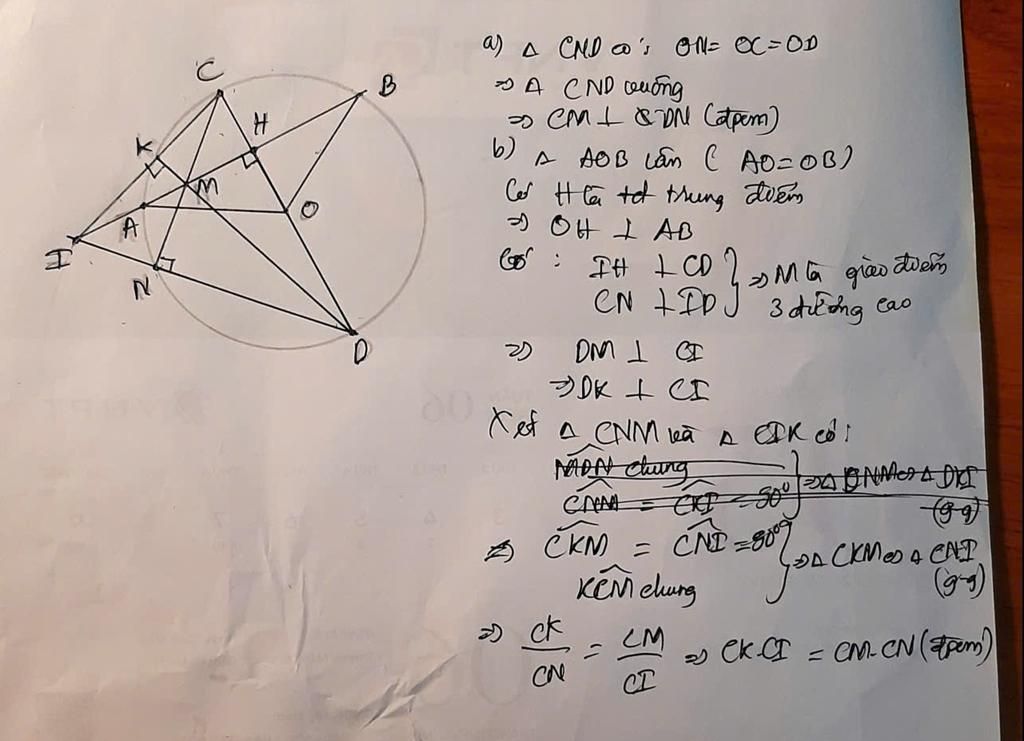 C
B
H
K
M
A
O
I
N
D
a) Δ CND có: ON= OC=OD
=> Δ CND vuông
=> CM ⊥ DN (đpcm)
b) Δ AOB cân ( AO=OB)
Có H là trung điểm
=> OH ⊥ AB
Có : IH ⊥ CD
CN ⊥ ID
} => M là giao điểm
3 đường cao
=> DM ⊥ CI
=> DK ⊥ CI
Xét Δ CNM và Δ CIK có:
MDN chung
=> CKM = CNI = 90°
KCM chung
} => Δ CKM ∽ Δ CNI
(g-g)
=> CK/CN = CM/CI => CK.CI = CM.CN (đpcm)